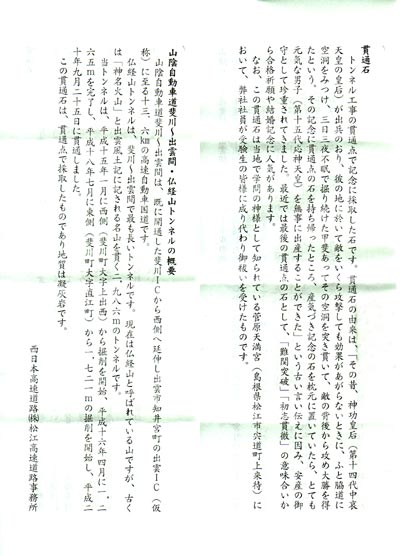 貫通石
トンネル工事の貫通点で記念に採取した石です。貫通石の由来は、「その昔、神功皇后（第十四代中哀
天皇の皇后）が出兵のおり、彼の地に於いて敵をいくら攻撃しても効果があがらないときに、ふと脇道に
空洞をみつけ、三日三夜不眠で掘り続けた甲斐あってその空洞を突き貫いて、敵の背後から攻め大勝を得
たという。その記念に貫通点の石を持ち帰ったところ、産気づき記念の石を枕元に置いていたら、とても
元気な男子（第十五代応神天皇）を無事に出産することができた」という古い言い伝えに因み、安産の御
守として珍重されてきました。最近では最後の貫通点の石として、「難関突破」「初志貫徹」の意味合いか
ら合格祈願や結婚記念に人気があります。
なお、この貫通石は当地で学問の神様として知られている菅原天満宮（島根県松江市宍道町上来待）に
おいて、弊社社員が受験生の皆様に成り代わり御祓いを受けたものです。
山陰自動車道斐川～出雲間・仏経山トンネルの概要
山陰自動車道斐川～出雲間は、既に開通した斐川ＩＣから西側へ延伸し出雲市知井宮町の出雲ＩＣ（仮
称）に至る十三．六㎞の高速自動車国道です。
仏経山トンネルは、斐川～出雲間で最も長いトンネルです。現在は仏経山と呼ばれている山ですが、古く
は「神名火山」と出雲風土記に記される名山を貫く二，九八六ｍのトンネルです。
当トンネルは、平成十五年一月に西側（斐川町大字上出西）から掘削を開始、平成十六年四月に一，二
六五ｍを完了し、平成十八年七月に東側（斐川町大字直江町）から一，七二一ｍの掘削を開始し、平成二
十年九月二十五日に貫通しました。
この貫通石は、貫通点で採取したものであり地質は凝灰岩です。
西日本高速道路㈱松江高速道路事務所